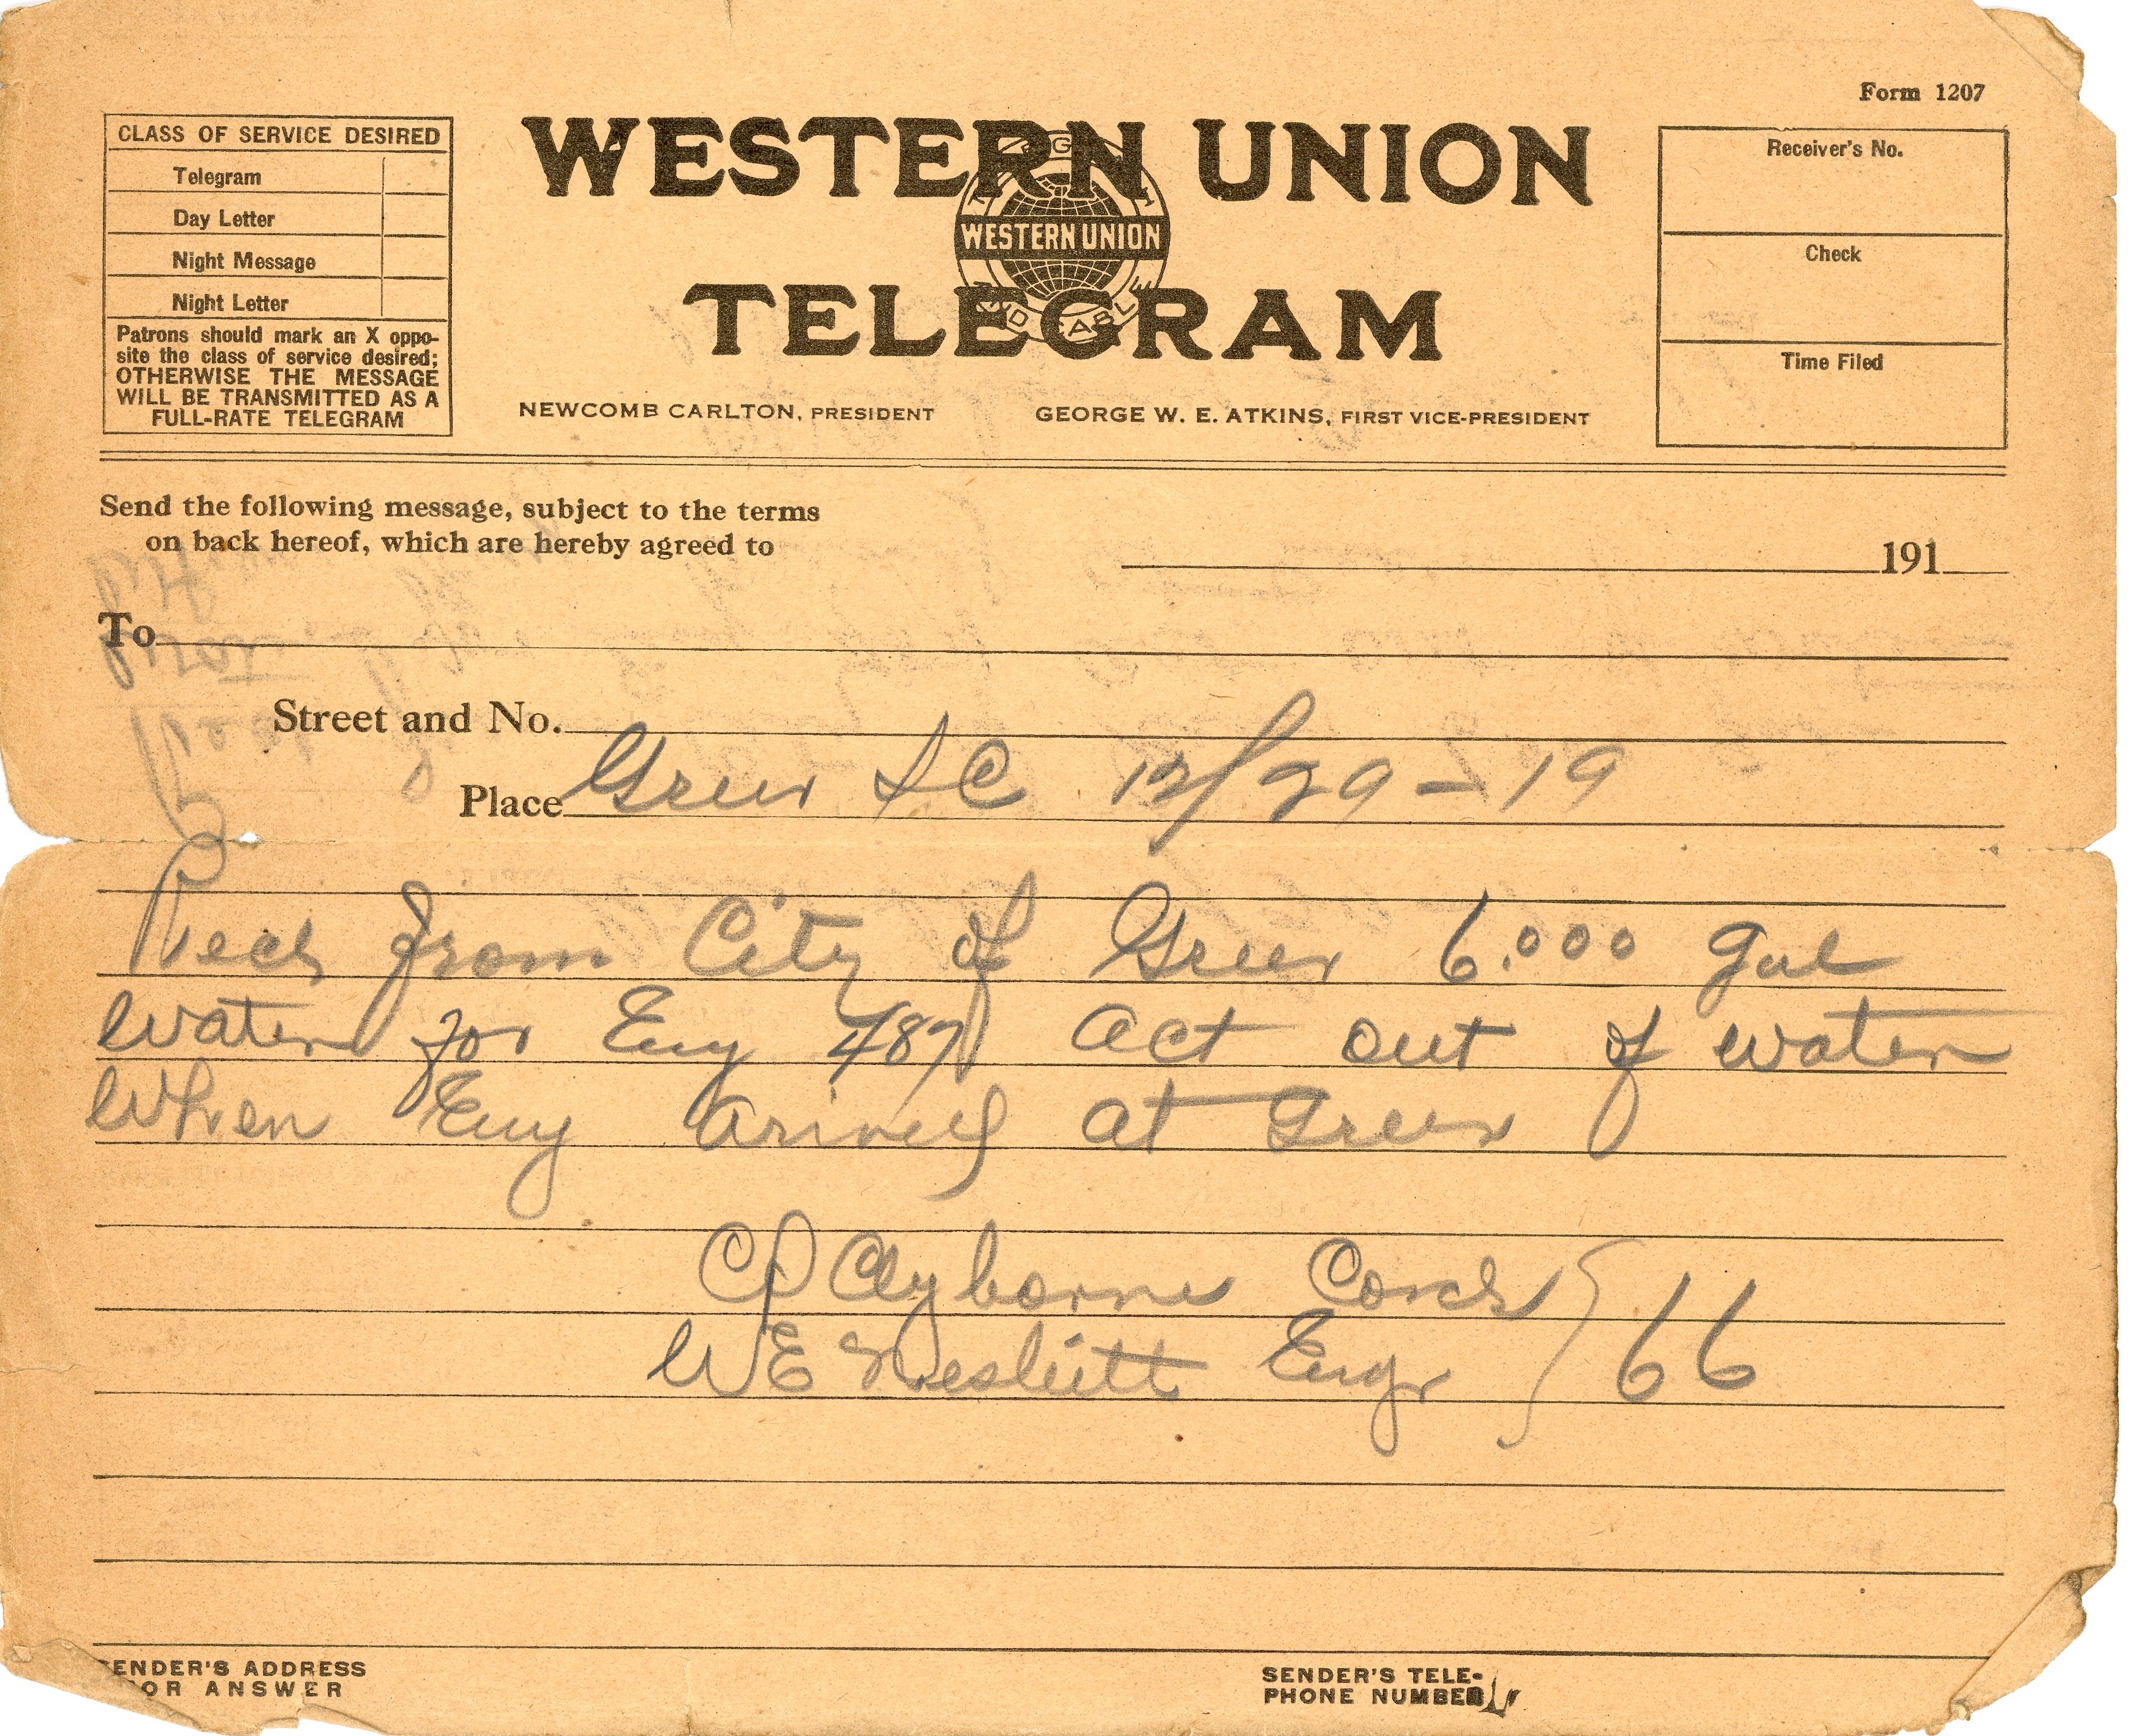 Form 1207
CLASS OF SERVICE DESIRED
Telegram
Day Letter
Night Message
Night Letter
Patrons should mark an X oppo-
site the class of service desired;
OTHERWISE THE MESSAGE
WILL BE TRANSMITTED AS A
FULL-RATE TELEGRAM
WESTERN UNION
WESTERN UNION
TELEGRAM
NEWCOMB CARLTON, PRESIDENT
GEORGE W. E. ATKINS, FIRST VICE-PRESIDENT
Receiver's No.
Check
Time Filed
Send the following message, subject to the terms
on back hereof, which are hereby agreed to
191
To
Street and No.
Place Greer SC 12/29-19
Recd from City of Greer 6.000 gal
water for Eng 487 act out of water
when Eng arived at Greer
CP Clyborne Cond } 66
WE Nesbitt Engr
SENDER'S ADDRESS
FOR ANSWER
SENDER'S TELE-
PHONE NUMBER